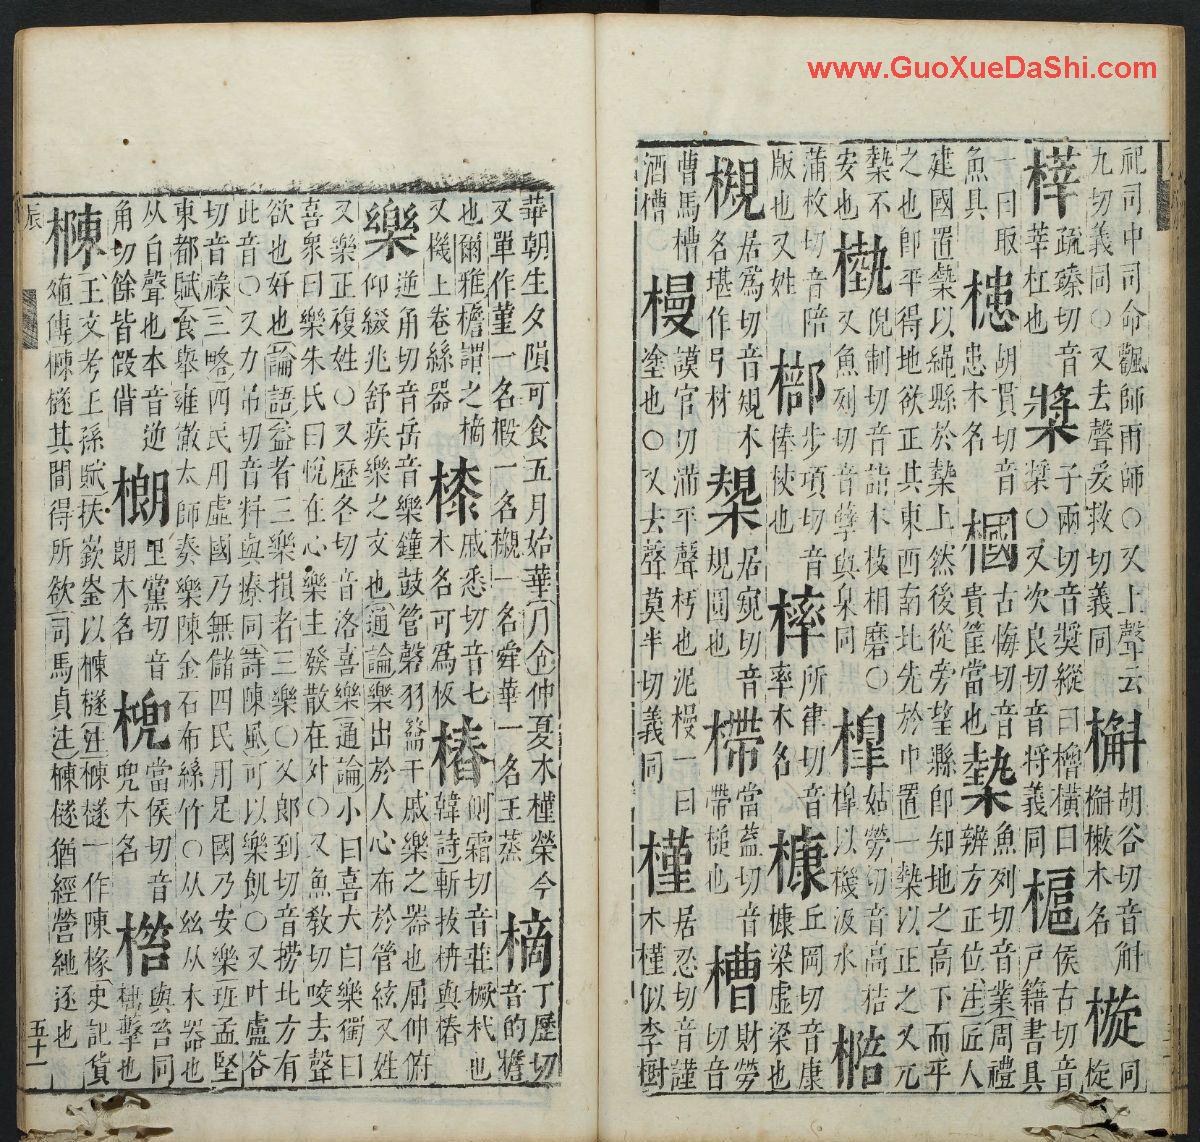 www.GuoXueDaShi.com
祀司中司命飌師雨師○又上聲云槲胡谷切音斛㯀同
九切義同○又去聲妥救切義同槲樕木名
榟疏臻切音莘杠也槳子兩切音獎縱曰櫓橫曰槳○又次良切音將義同槴侯古切音戶籍書具
一曰取魚具槵胡貫切音患木名槶古悔切音貴筐當也槷魚列切音業周禮
建國置槷以繩縣於槷上然後從旁望縣卽知地之高下而平
之也卽平得地欲正其東西南北先於中置一槷以正之又兀
槷不安也槸倪制切音詣木枝相磨○又魚列切音孽與臬同槹姑勞切音高桔槹以機汲水
蒲枚切音陪版也又姓步項切音棒㭋也率木名所律切音槺丘岡切音康槺梁虛梁也
槻居爲切音規木名堪作弓材槼居宛切音規圓也當蓋切音帶槌也槽財勞切音
曹馬槽酒槽○槾謨官切滿平聲杇也泥槾一曰塗也○又去聲莫半切義同槿居忍切音謹木槿似李樹
華朝生夕隕可食五月始華月令仲夏木槿榮今樀丁歷切音的檐
又單作堇一名椴一名櫬一名舜華一名王蒸
也爾雅檐謂之樀又機上卷絲器㯃戚悉切音七木名可爲杖樁側霜切音莊橛杙也韓詩斬拔枿與樁
樂逆角切音岳音樂鐘鼓管磬羽籥干戚樂之器也屈伸俯
仰綴兆舒疾樂之文也通論樂出於人心布於管絃又姓
又樂正複姓○又歷各切音洛喜樂通論小曰喜大曰樂獨曰
喜衆曰樂朱氏曰悅在心樂主發散在外○又魚敎切咬去聲
欲也好也論語益者三樂損者三樂○又郞到切音撈北方有
此音○又力吊切音料與療同詩陳風可以樂飢○又叶盧谷
切音祿三略四民用虛國乃無儲四民用足國乃安樂班孟堅
東都賦食舉雍徹太師奏樂陳金石布絲竹○从𢆶从木器也
从白聲也本音逆角切餘皆假借㮾里黨切音朗木名當侯切音兜木名與㭕同
樄王文考王孫賦扶嶔崟以樄檖注樄檖一作陳椽史記貨
殖傳樄檖其間得所欲司馬貞注樄檖猶經營馳逐也
辰
五十一